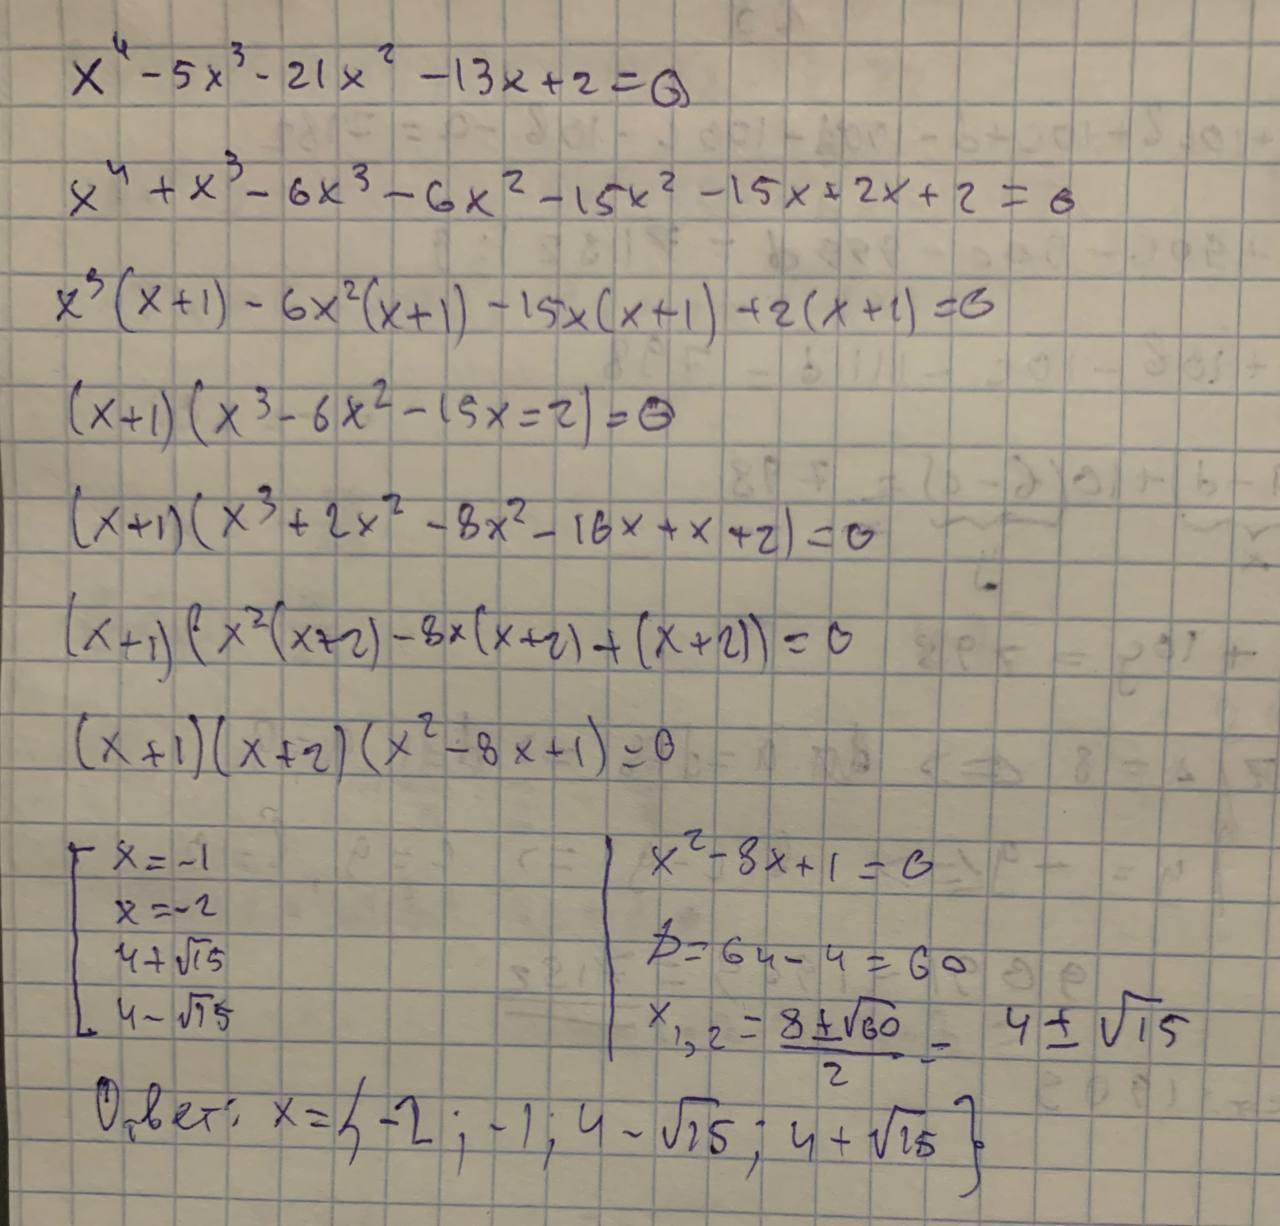 x⁴ - 5x³ - 21x² - 13x + 2 = 0
x⁴ + x³ - 6x³ - 6x² - 15x² - 15x + 2x + 2 = 0
x³(x+1) - 6x²(x+1) - 15x(x+1) + 2(x+1) = 0
(x+1)(x³ - 6x² - 15x = 2) = 0
(x+1)(x³ + 2x² - 8x² - 16x + x + 2) = 0
(x+1)(x²(x+2) - 8x(x+2) + (x+2)) = 0
(x+1)(x+2)(x² - 8x + 1) = 0
x = -1
x = -2
4 + √15
4 - √15
x² - 8x + 1 = 0
D = 64 - 4 = 60
x₁,₂ = (8 ± √60)/2 = 4 ± √15
Ответ: x = { -2 ; -1 ; 4 - √15 ; 4 + √15 }